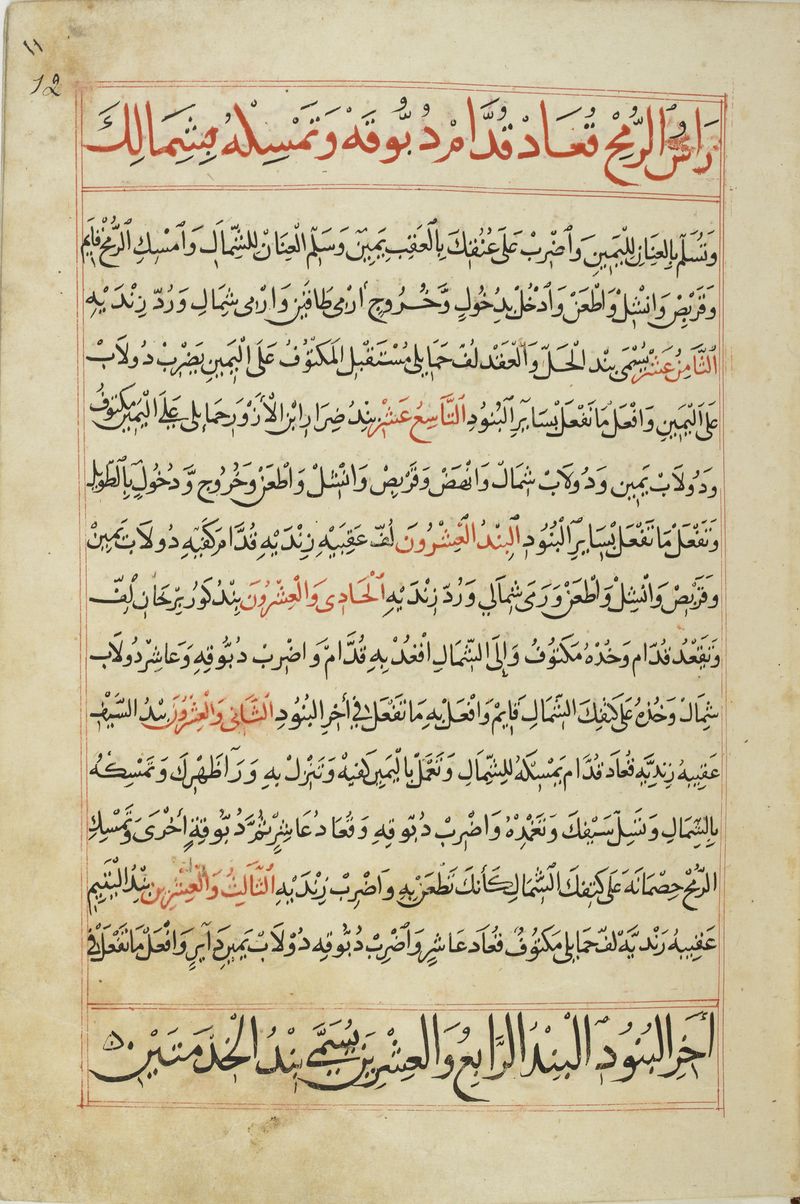 ١١
12
رَاسُ الرُّمْحِ قُعَادْ قُدَّامْ دُبُّوقَهْ وَتَمْسِكْهُ بِشِمَالِكَ
وَتُسَلِّمْ بِالعِنَانِ لِليَمِينِ وَاَضْرِبْ عَلَى عُنُقِكَ بِالْعَقِبِ يَمِينْ وَسَلِّم الْعِنَانْ لِلشِّمَالِ وَاَمْسِكِ الرُّمْحَ قَايِم
وَقَرْبِصْ وَانْشِلْ وَاطْعَنْ وَاَدْخُلْ بِدُخُولٍ وَّخُرُوجٍ اَرْمِى طَاقَيْنِ وَارْمِى شِمَالِ وَرُدّ زِنْدَيْهِ
الثَّامِنُ عَشَرْ يُسْمَى بِنْد الْحَلّ وَالْعَقْد لُفّ حَمَايِلى مُسْتَقْبِل اَلمَكْتُوفُ عَلَى الْيَمِينِ يَضْرِبْ دُولاَبْ
عَلَى الْيَمِينِ وَافْعَلْ مَا تَفْعَلْ بِسَايِرِ البُنُودِ التَّاسِعُ عَشَرْ بِنْدُ ضِرَارِ ابْنِ الْأَزْوَرِ حَمَايِلى عَلَى الْيَمِينِ مَكْتُوفُ
وَدُولاَبْ يَمِين وَدُولاَبْ شِمَالْ وَانْهَضْ وَقَرْبِصْ وَانْشِلْ وَاطْعَنْ وَخُرُوجٍ وَّدُخُولٍ بِالطَّوِيلِ
وَتَفْعَلْ مَا تَفْعَلْ بِسَايِرِ الْبُنُودِ البِنْدُ الْعِشْرُونَ لُفّ عَقِبَيْهِ زِنْدَيْهِ قُدَّامَ كَفَّيْهِ دُولاَبْ يَمِينْ
وَقَرْبِصْ وَانْشِلْ وَاطْعَنْ وَرَمَى شِمَالِي وَرُدّ زِنْدَيْهِ اَلْحَادِى وَالْعِشْرُونَ بِنْدُ كُورُ بِرْخَان لُفّ
وَتَقْعُدْ قُدَّام وَخُذْهُ مَكْتُوفُ وَإِلَى الشِّمَالِ اقْعُدْ بِهِ قُدَّامْ وَاضْرِبْ دُبُّوقِهِ وَعَاشِرْ دُولاَب
شِمَالْ وَخُذْهُ عَلَى كَتْفِكَ الشِّمَالِ قَايِمْ وَافْعَلْ بِهِ مَا تَفْعَلْ فِى اَخِرِ البُنُودِ الثَّانِى وَالْعِشْرُونَ بِنْدُ السَّيْفِ
عَقِبِيهُ زِنْدِيَّهِ قُعَاد قُدَّام يَمْسِكُهُ لِلشِّمَالِ وَتَعْمَلْ بِالْيَمِينِ كَفِيهْ وَتَنْزِلْ بِهِ وَرَآ ظَهْرِكَ وَتَمْسِكُهُ
بِالشِّمَالِ وَتَسِلّ سَيْفِكَ وَتَغْمِدْهُ وَاضْرِبْ دُبُّوقِهِ وَقُعَاد عَاشِرْ ثُمَّ دُبُّوقِةٍ اُخْرَى وَتَمْسِكِ
الرُّمْحَ حِصْمَانَةَ عَلَى كَتِفِكَ الشِّمَالِ كَأَنَكَ تَطْعَنْ بِهِ وَاضْرِبْ زِنْدَيْهِ الثَّالِثُ وَالْعِشْرِينَ بِنْدُ الْيَتِيمِ
عَقِبِيهُ زَنْدِيَّهْ لُفّ حَمَايِلى مَكْتُوفُ قُعَاد عَاشِرِ وَاَضْرِبْ دُبُّوقِهِ دُوْلاَبْ يَمِينْ دَآيِرٍ وَافْعَلْ مَا تَفْعَلْ فِى
اَخِرِ البُنُودِ الْبِنْدُ الرَّابِعُ وَالْعِشْرِينَ يُسَمَّى بِنْدُ الْخَدْمَتَيْنِ